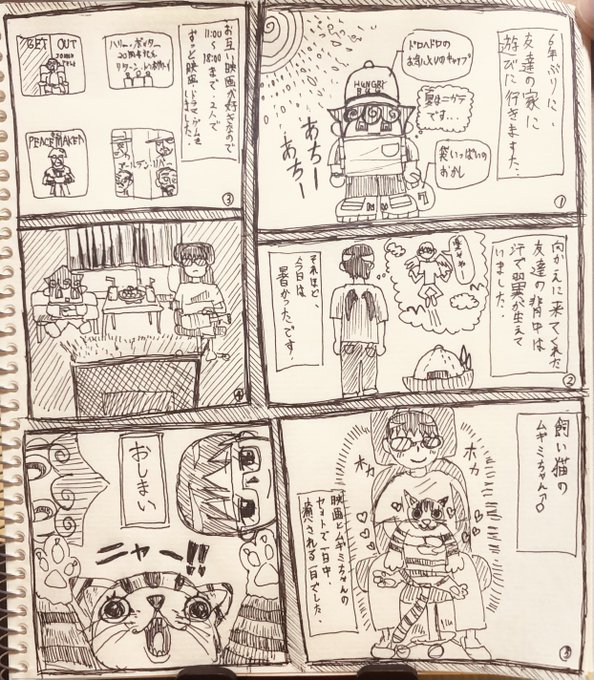 6年ぶりに、
友達の家に
遊びに行きました。
ドロヘドロの
お気に入りのキャップ
HUNGRY
夏はニガテ
です…
袋いっぱいの
おかし
あちー
あちー
①
向かえに来てくれた
友達の背中は
汗で翼が生えて
いました。
それほど、
今日は
暑かったです。
②
お互い映画が好きなので
11:00
〜
18:00まで、2人で
ずっと映画、ドラマ、ゲームを
しました。
GET OUT
ハリー・ポッター
20周年記念
PEACEMAKER
ゴールデン・リバー
③
④
飼い猫の
ムギミちゃん♂
ホカ
ホカ
映画とムギミちゃんの
で一日中、
蒸される一日でした。
⑤
おしまい
ニャー!!